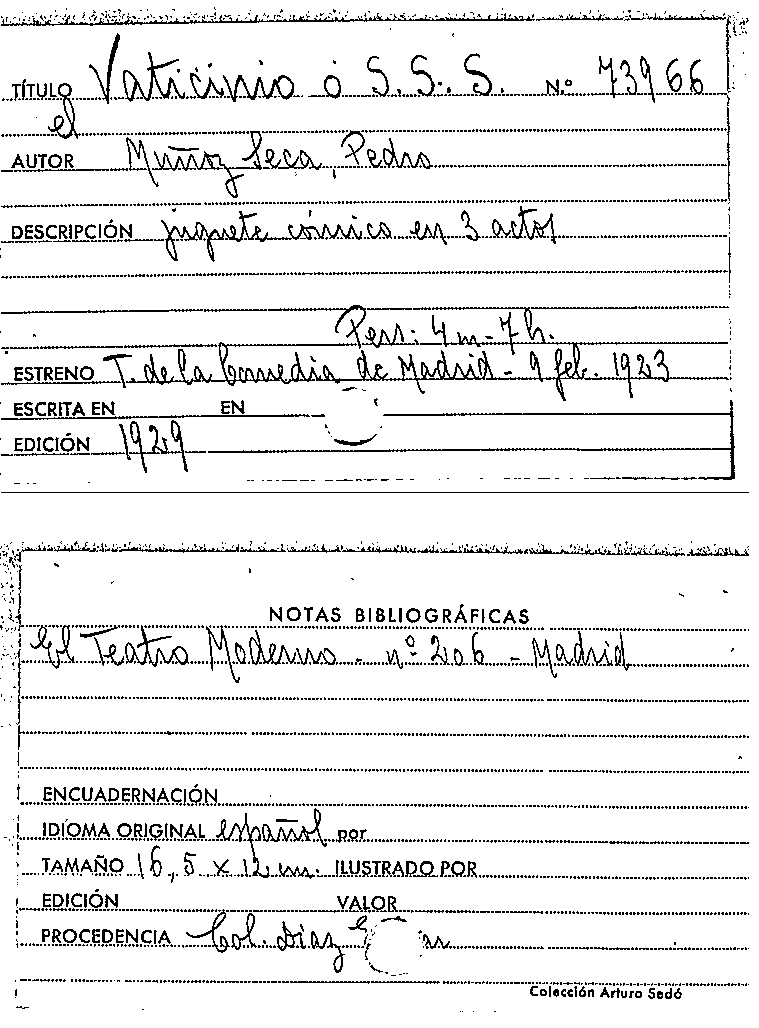 TÍTULO Vaticinio ó S.S.S. N.º 73966
el
AUTOR Muñoz Seca, Pedro
DESCRIPCIÓN juguete cómico en 3 actos
Pers: 4 m - 7 h.
ESTRENO T. de la Comedia de Madrid - 9 feb. 1923
ESCRITA EN EN
EDICIÓN 1929
NOTAS BIBLIOGRÁFICAS
El Teatro Moderno - nº 206 - Madrid
ENCUADERNACIÓN
IDIOMA ORIGINAL español por
TAMAÑO 16,5 x 12 cm. ILUSTRADO POR
EDICIÓN VALOR
PROCEDENCIA Col. Díaz
Colección Arturo Sedó